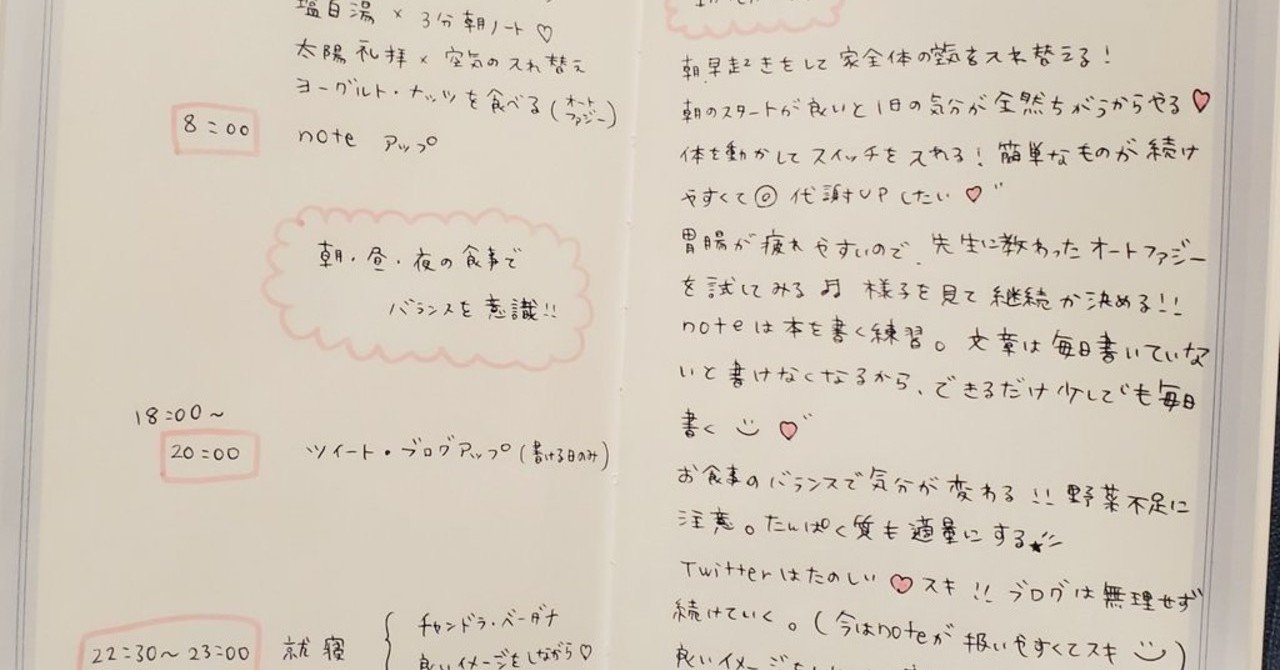 塩白湯 × 3分朝ノート♡
太陽礼拝 × 空気の入れ替え
ヨーグルト・ナッツを食べる(オートファジー)
8:00 note アップ
朝・昼・夜の食事で
バランスを意識!!
18:00~
20:00 ツイート・ブログアップ(書ける日のみ)
22:30~23:00 就寝
チャンドラ・ベーダナ
良いイメージをしながら♡
朝早起きをして家全体の空気を入れ替える!
朝のスタートが良いと1日の気分が全然ちがうからやる♥
体を動かしてスイッチを入れる!簡単なものが続け
やすくて◎代謝UPしたい♥
胃腸が疲れやすいので、先生に教わったオートファジー
を試してみる♬ 様子を見て継続か決める!!
noteは本を書く練習。文章は毎日書いていな
いと書けなくなるから、できるだけ少しでも毎日
書く ♥
お食事のバランスで気分が変わる!!野菜不足に
注意。たんぱく質も適量にする★
Twitterはたのしい♥スキ!!ブログは無理せず
続けていく。(今はnoteが扱いやすくてスキ)
良いイメージを